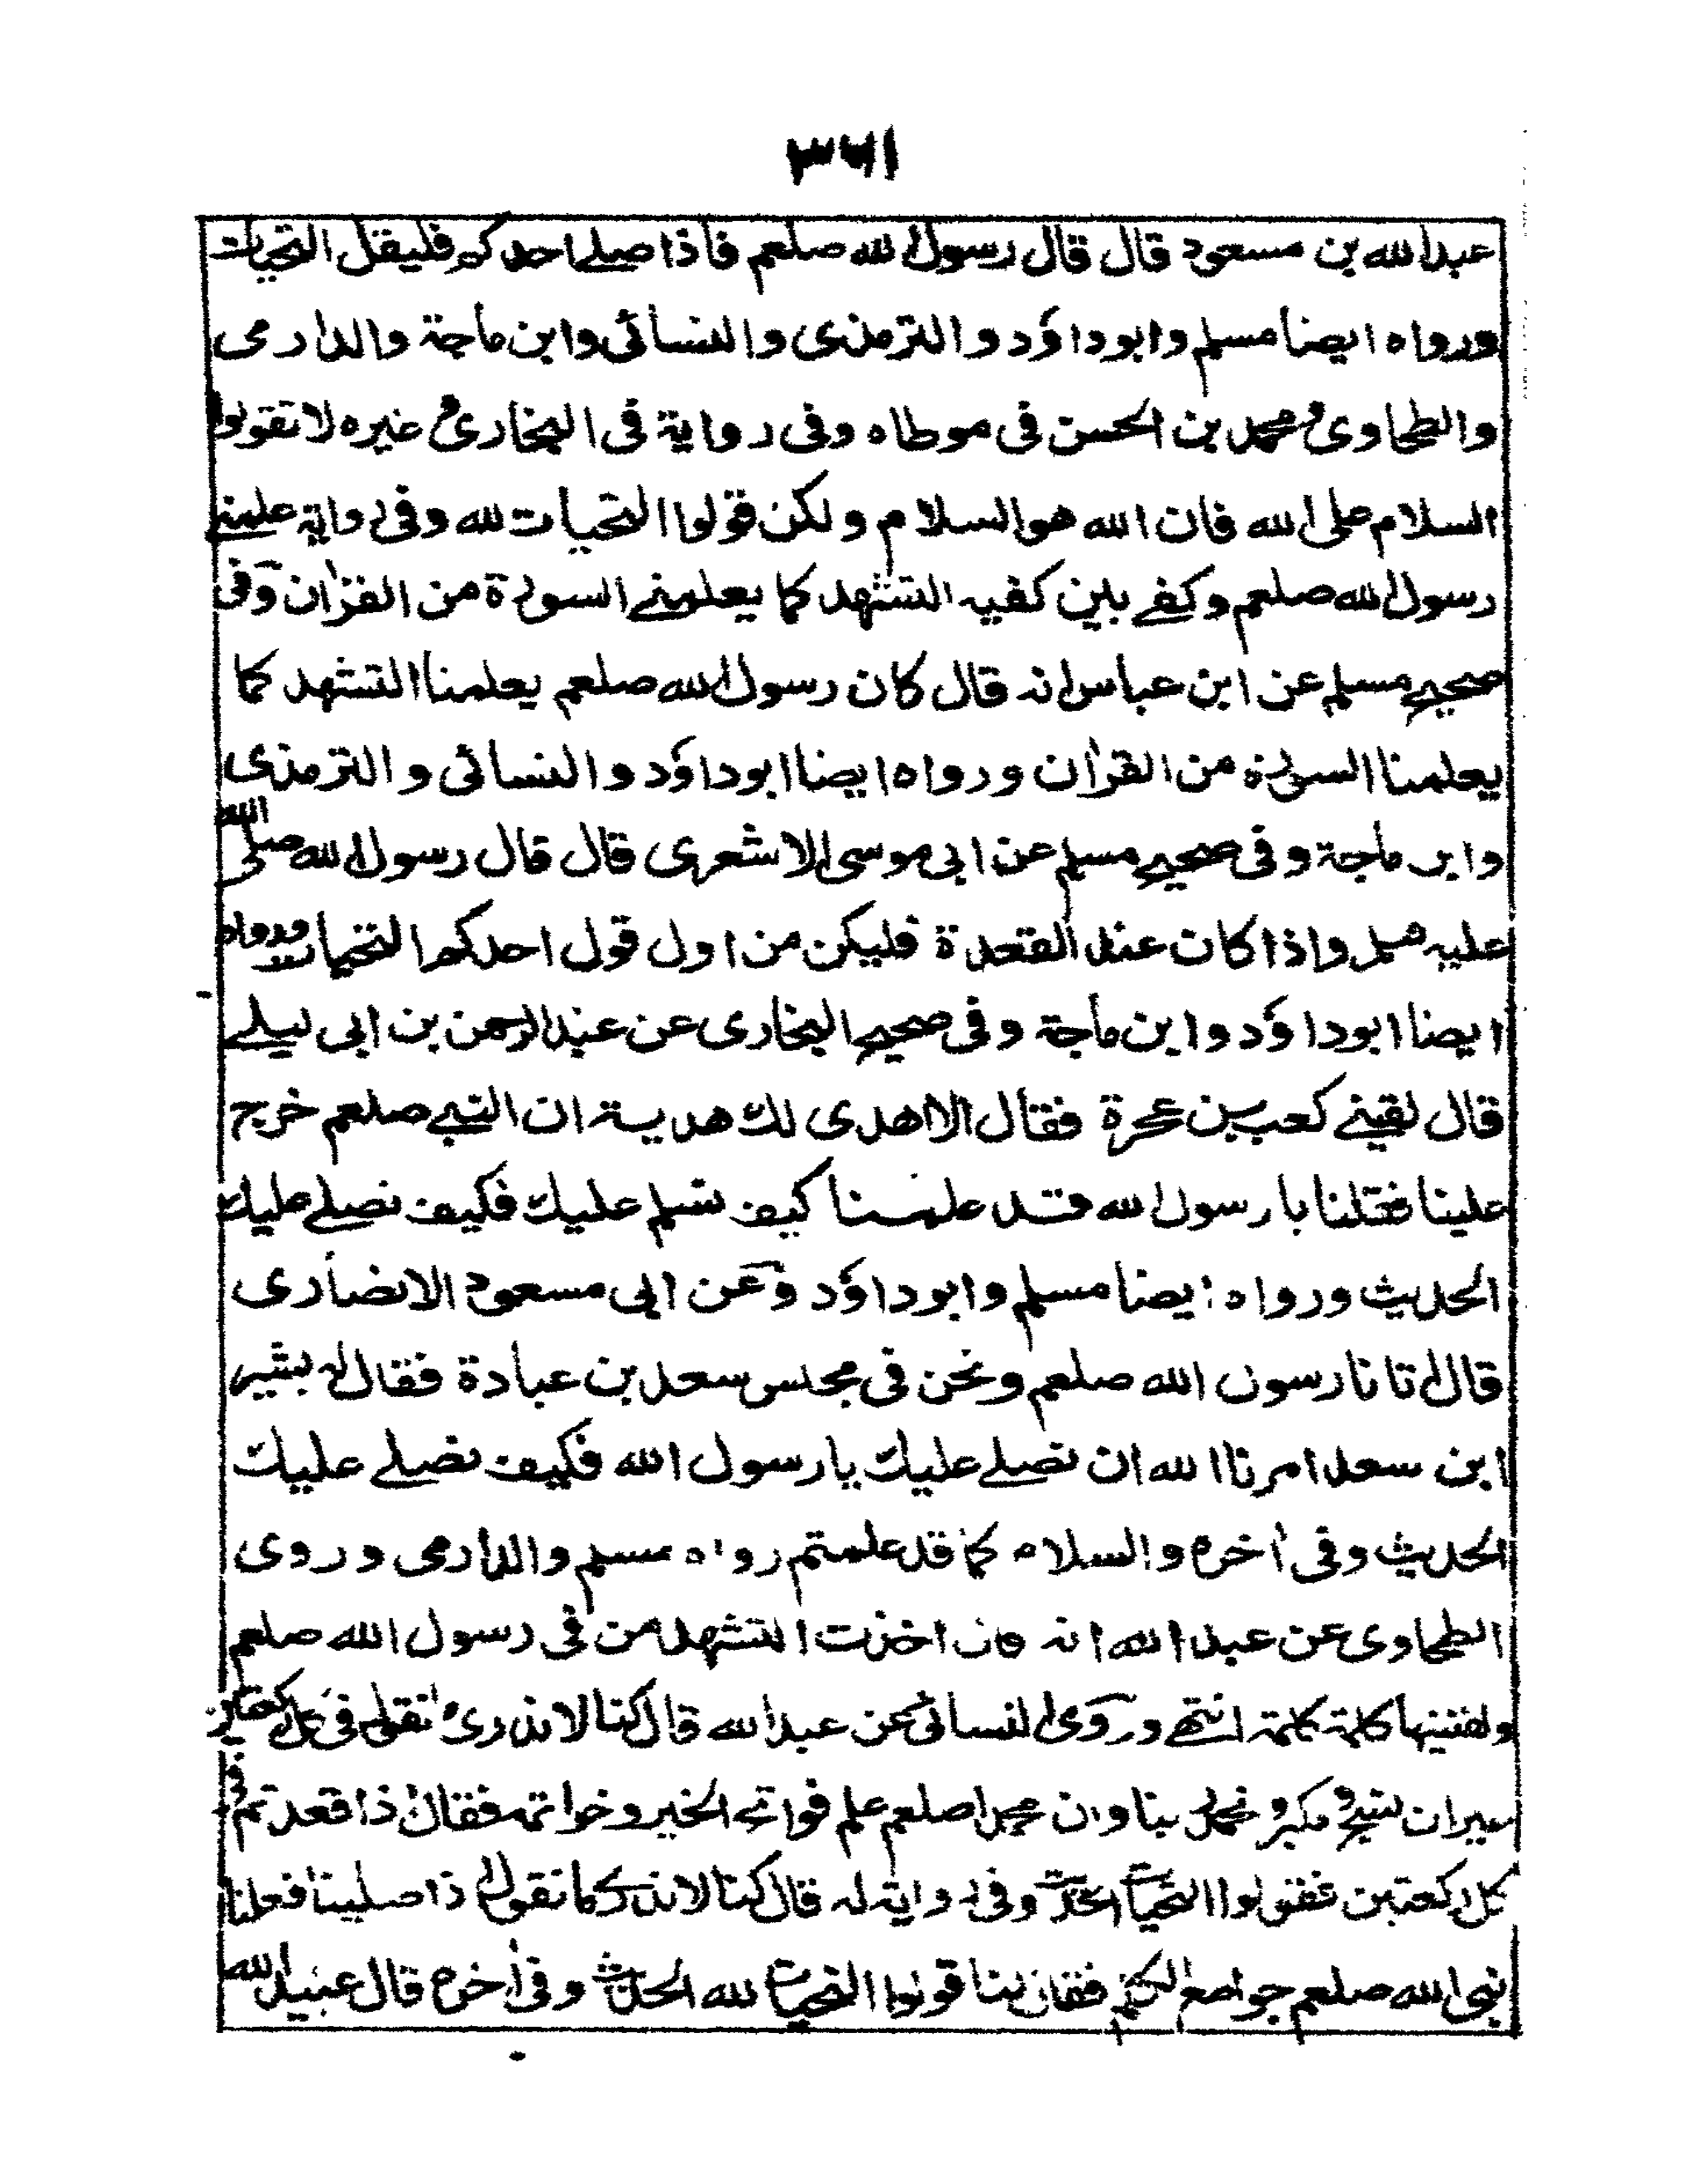 ٣٦١
عبد الله بن مسعود قال قال رسول الله صلعم فاذا صلے احدكم فليقل التحيات
ورواه ايضا مسلم وابوداؤد والترمذى والنسائى وابن ماجة والدارمى
والطحاوى ومحمد بن الحسن فى موطاه وفى رواية فى البخارى وغيره لا تقولوا
السلام على الله فان الله هو السلام ولكن قولوا التحيات لله وفى رواية علمنے
رسول الله صلعم وكفے بين كفيه التشهد كما يعلمنے السورة من القرٰان وفى
صحيح مسلم عن ابن عباس انه قال كان رسول الله صلعم يعلمنا التشهد كما
يعلمنا السورة من القرٰان ورواه ايضا ابوداؤد والنسائى والترمذى
وابن ماجة وفى صحيح مسلم عن ابى موسى الاشعرى قال قال رسول الله صلى الله
عليه وسلم واذا كان عند القعدة فليكن من اول قول احدكم التحيات ورواه
ايضا ابوداؤد وابن ماجة وفى صحيح البخارى عن عبد الرحمن بن ابى ليلے
قال لقينے كعب بن عجرة فقال الا اهدى لك هدية ان النبے صلعم خرج
علينا فقلنا يا رسول الله قد علمنا كيف نسلم عليك فكيف نصلے عليك
الحديث ورواه ايضا مسلم وابوداؤد وعن ابى مسعود الانصارى
قال اتانا رسول الله صلعم ونحن فى مجلس سعد بن عبادة فقال له بشير
ابن سعد امرنا الله ان نصلے عليك يا رسول الله فكيف نصلے عليك
الحديث وفى اٰخره والسلام كما قد علمتم رواه مسلم والدارمى وروى
الطحاوى عن عبد الله انه قال اخذت التشهد من فى رسول الله صلعم
ولقننيها كلمة كلمة انتهے وروى النسائى عن عبد الله قال كنا لا ندرى ما نقول فى كل ركعتين
غير ان نسبح ونكبر ونحمد ربنا وان محمدا صلعم علم فواتح الخير وخواتمه فقال اذا قعدتم فى
كل ركعتين فقولوا التحيات الحديث وفى رواية له قال كنا لا ندرى ما نقول اذا صلينا فعلمنا
نبى الله صلعم جوامع الكلم فقال لنا قولوا التحيات لله الحديث وفى اٰخره قال عبيد الله